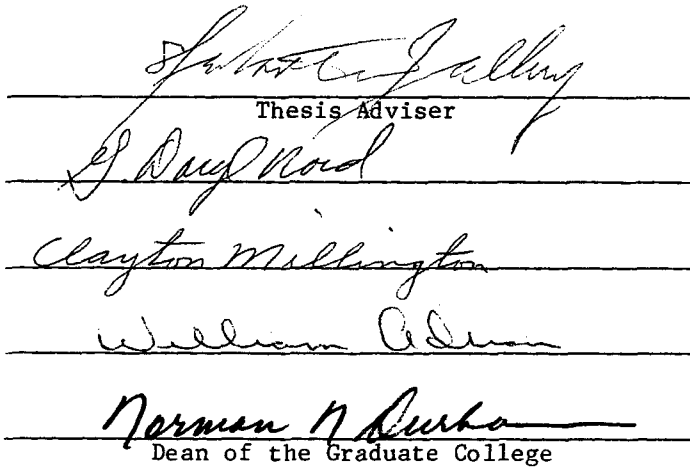 Thesis Adviser
G. Daryl Nord
Clayton Millington
William
Norman N Durham
Dean of the Graduate College